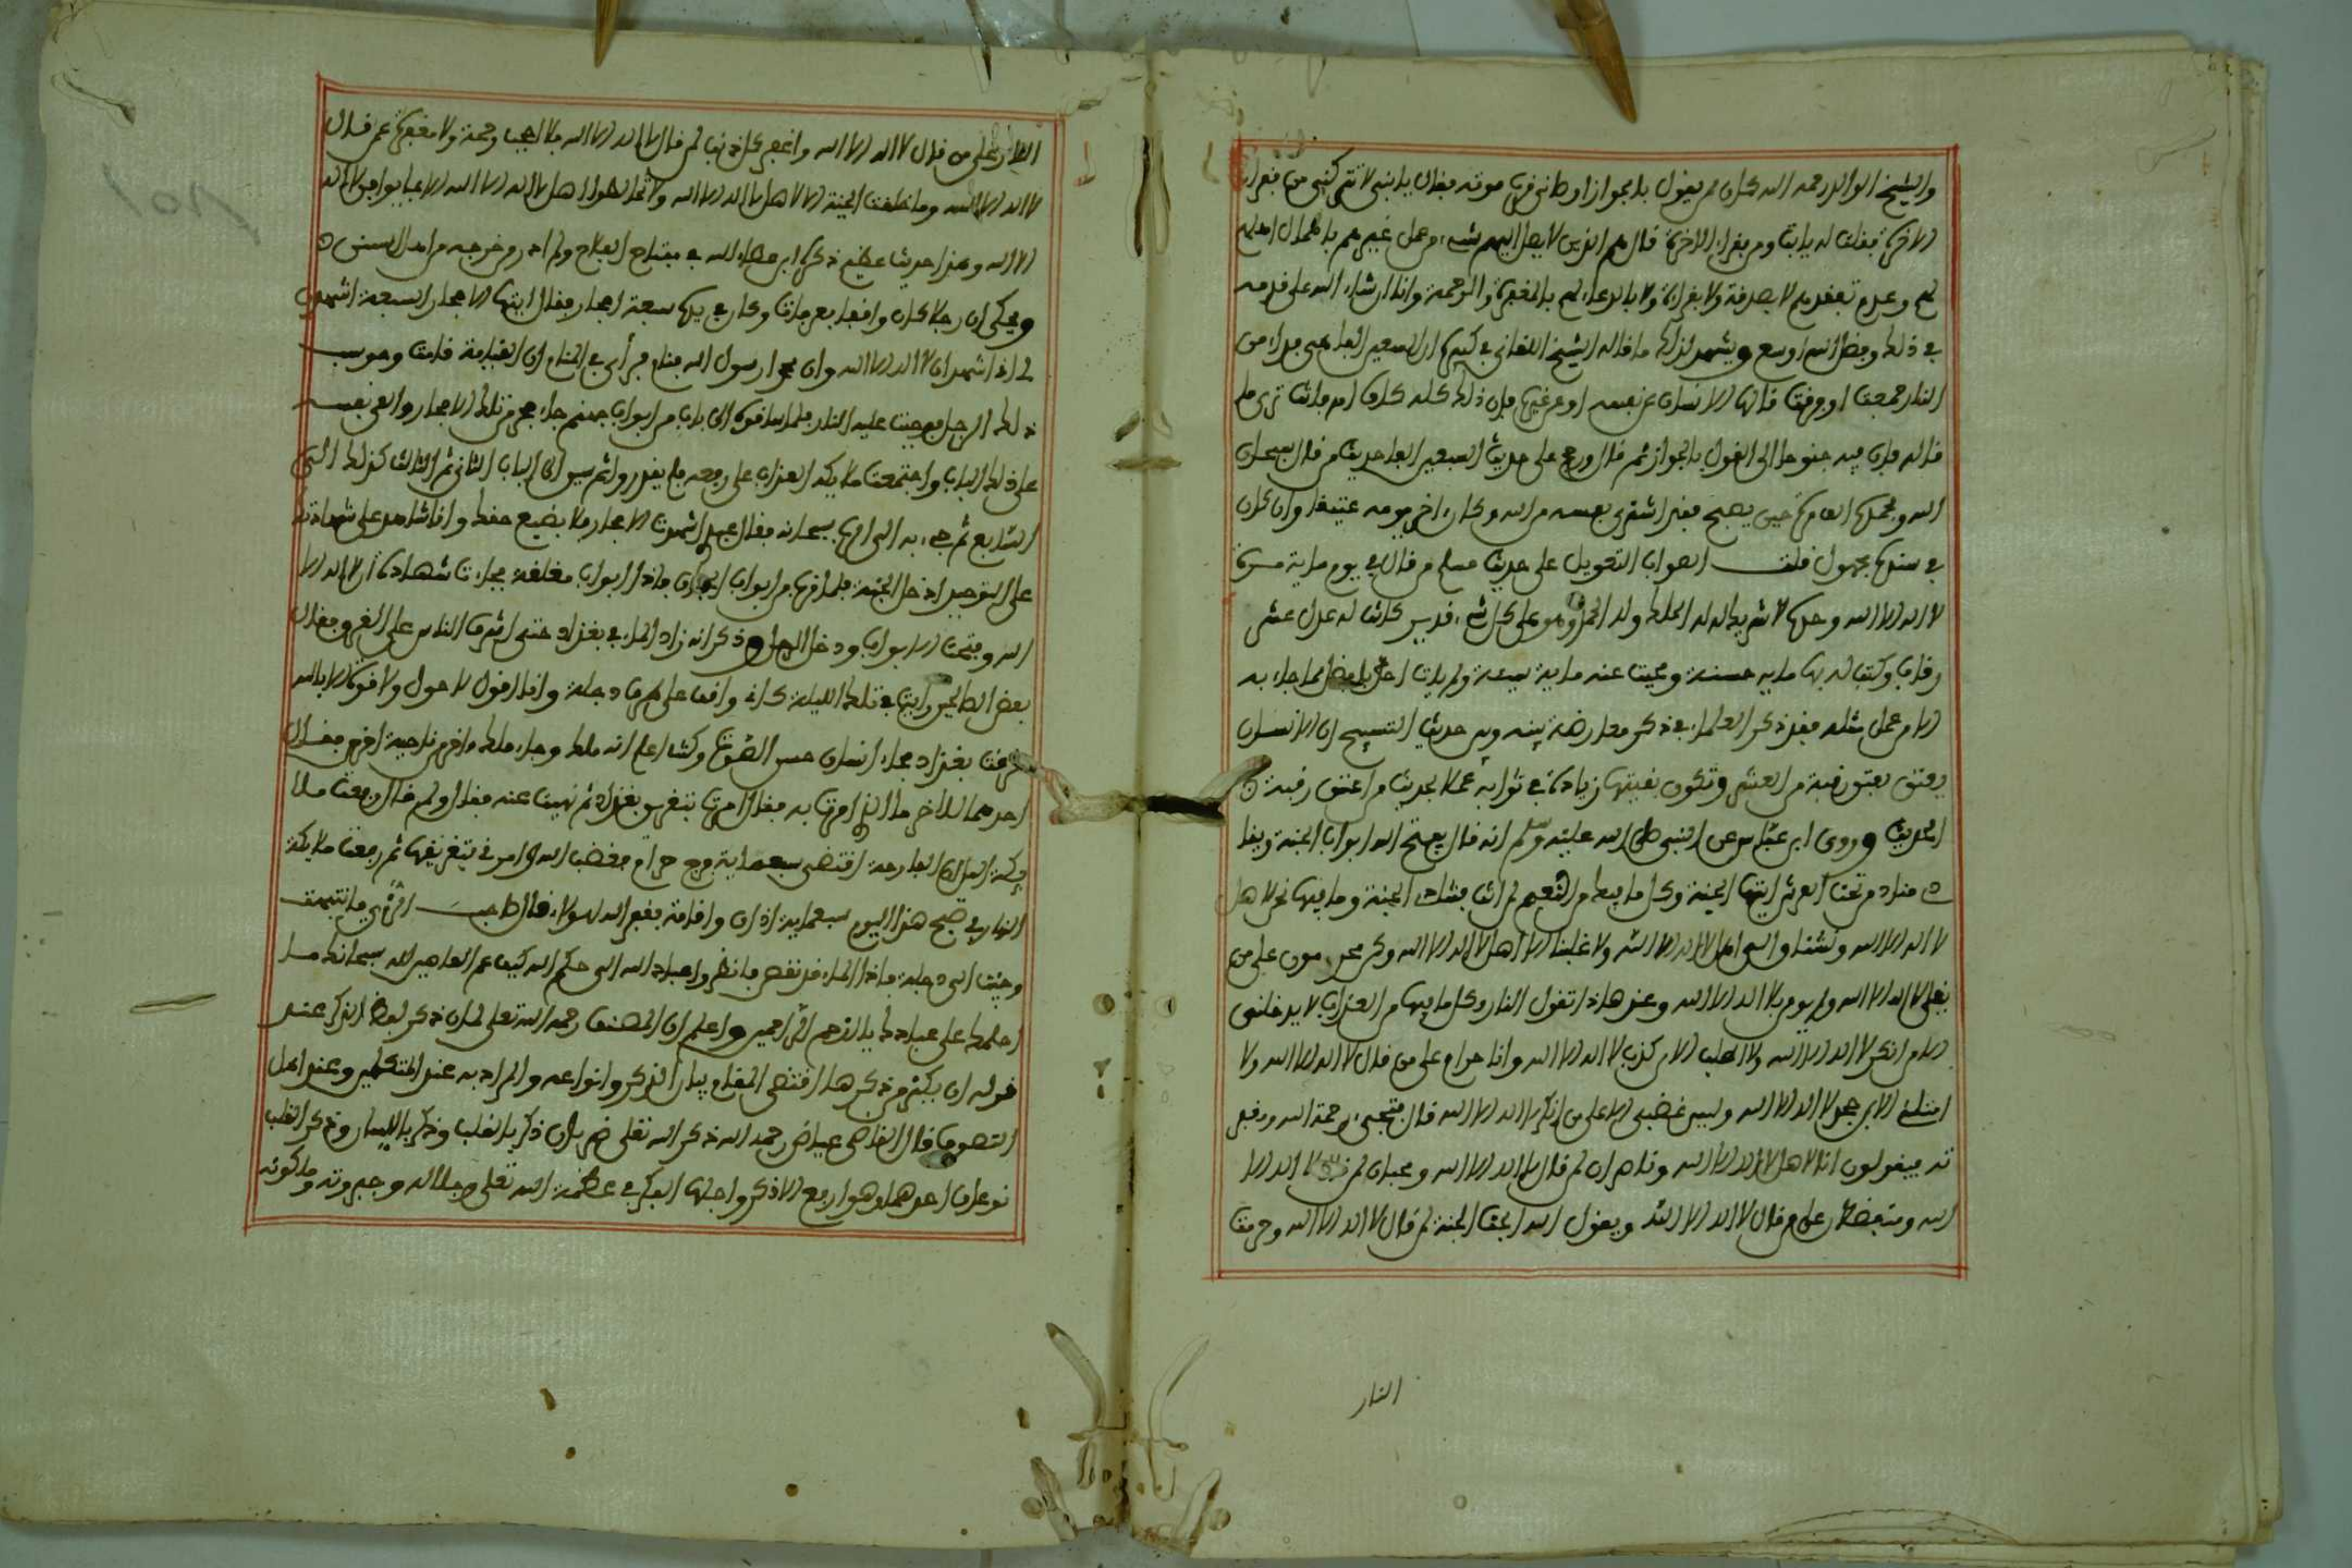 والشيخ الوالد رحمه الله كان ممن يقول بالجواز اوصاني قرب موته فقال يا بني لا تتركني من قراءة
الاخرة فقلت له يا ابت ومن يقرا الاخرة قال هم الذين لا يصل اليهم شيء من عمل غيرهم باهمال اهليهم
لهم وعدم تفقدهم لا بصدقة ولا بقراءة ولا بالدعاء لهم بالمغفرة والرحمة وانا ان شاء الله على قدمه
في ذلك وفضل الله اوسع ويشهد لذلك ما قاله الشيخ اللقاني في كبيره ان السبعين الفا هي فداء من
النار حيث وقعت قالها الانسان عن نفسه او عن غيره فان ذلك كله كلام
قاله فان فيه جنوحا الى القول بالجواز ثم قال ورجح على حديث السبعين الفا حديث من قال سبحان
الله وبحمده الف مرة حين يصبح فقد اشترى نفسه من الله وكان اخر يومه عتيقا وان كان
في سنده مجهول قلت الصواب التعويل على حديث مسلم من قال في يوم ماية مرة
لا اله الا الله وحده لا شريك له له الملك وله الحمد وهو على كل شيء قدير كانت له عدل عشر
رقاب وكتب له بها ماية حسنة ومحيت عنه ماية سيئة ولم يات احد بافضل مما جاء به
الا من عمل مثله فقد ذكر العلماء في ذكر معارضة بينه وبين حديث التسبيح ان الانسان
يعتق بعتق رقبة من العشر وتكون بقيتها زيادة في ثوابه عملا بحديث من اعتق رقبة
الحديث وروى ابن عباس عن النبي صلى الله عليه وسلم انه قال يفتح الله ابواب الجنة وينا
دي مناد من تحت العرش ايتها الجنة وكل ما فيك من النعيم لمن انت فتنادي الجنة وما فيها نحن لاهل
لا اله الا الله ونشتاق الى اهل لا اله الا الله ولا علينا الا اهل لا اله الا الله ونحن محرمون على من
يقل لا اله الا الله ولم يومن بلا اله الا الله وعند هذا تقول النار وكل ما فيها من العذاب لا يدخلني
الا من انكر لا اله الا الله ولا اطلب الا من كذب لا اله الا الله وانا حرام على من قال لا اله الا الله ولا
امتلئ الا بمن جحد لا اله الا الله وليس غضبي الا على من انكر لا اله الا الله قال فتجيء رحمة الله ومغفر
ته فيقولون انا لاهل لا اله الا الله وناصران لمن قال لا اله الا الله ومحبان لمن قال لا اله الا
الله ومتفضلان على من قال لا اله الا الله ويقول الله ابحت الجنة لمن قال لا اله الا الله وحرمت
النار
النار على من قال لا اله الا الله واغفر كل ذنب لمن قال لا اله الا الله فلا احجب رحمة ولا مغفرة عن من قال
لا اله الا الله وما خلقت الجنة الا لاهل لا اله الا الله ولا تخلطوا اهل لا اله الا الله الا بما يوافق لا اله
الا الله وهذا حديث عظيم ذكره ابن عطاء الله في مفتاح الفلاح ولم ادر من خرجه من اهل السنن
ويحكى ان رجلا كان واقفا بعرفات وكان في يده سبعة احجار فقال ايتها الاحجار السبعة اشهدن
لي اني اشهد ان لا اله الا الله وان محمدا رسول الله فنام فراى في المنام ان القيامة قامت وحوسب
ذلك الرجل فوجبت عليه النار فلما ساقوه الى باب من ابواب جهنم جاء حجر من تلك الاحجار والقى نفسه
على ذلك الباب واجتمعت ملايكة العذاب على رفعه فلم يقدروا ثم سيق الى الباب الثاني ثم الثالث كذلك الى
السابع ثم جيء به الى الله سبحانه فقال عبدي اشهدت الاحجار فلا يضيع حقك وانا شاهد على شهادتك
على التوحيد ادخل الجنة فلما قرب من ابواب الجنان فاذا الابواب مغلقة فجاءت شهادة ان لا اله الا
الله وفتحت الابواب ودخل الرجل وذكر انه زاد الماء في بغداد حتى اشرف الناس على الغرق فقال
بعض الصالحين رايت في تلك الليلة كاني واقف على طرف دجلة وانا اقول لا حول ولا قوة الا بالله
غرقت بغداد فجاء انسان حسن الصوت وكنت اعلم انه ملك وجاء ملك اخر من ناحية اخرى فقال
احدهما للاخر ما الذي امرت به فقال امرت بتغريق بغداد ثم نهيت عنه فقال ولم قال رفعت ملا
يكة الليل ان البارحة افتضى سبعماية فرج حرام فغضب الله وامرني بتغريقها ثم رفعت ملايكة
النهار في صبح هذا اليوم سبعماية اذان واقامة فغفر الله لهولاء قال صاحب فانتبهت
وجئت الى دجلة فاذا الماء قد نقص فانظروا عباد الله الى حكم الله كيف عم الفاهر الله سبحانك ما
احلمك على عبادك يا ارحم الراحمين واعلم ان المصنف رحمه الله تعلى لما ان ذكر لفظ الذكر عند
قوله ان يكثر من ذكرها اقتضى المقام بيان الذكر وانواعه والمراد به عند المتكلمين وعند اهل
التصوف قال القاضي عياض رحمه الله ذكر الله تعلى ضربان ذكر بالقلب وذكر باللسان وذكر القلب
نوعان احدهما وهو ارفع الاذكار واجلها الفكر في عظمة الله تعلى وجلاله وجبروته وملكوته